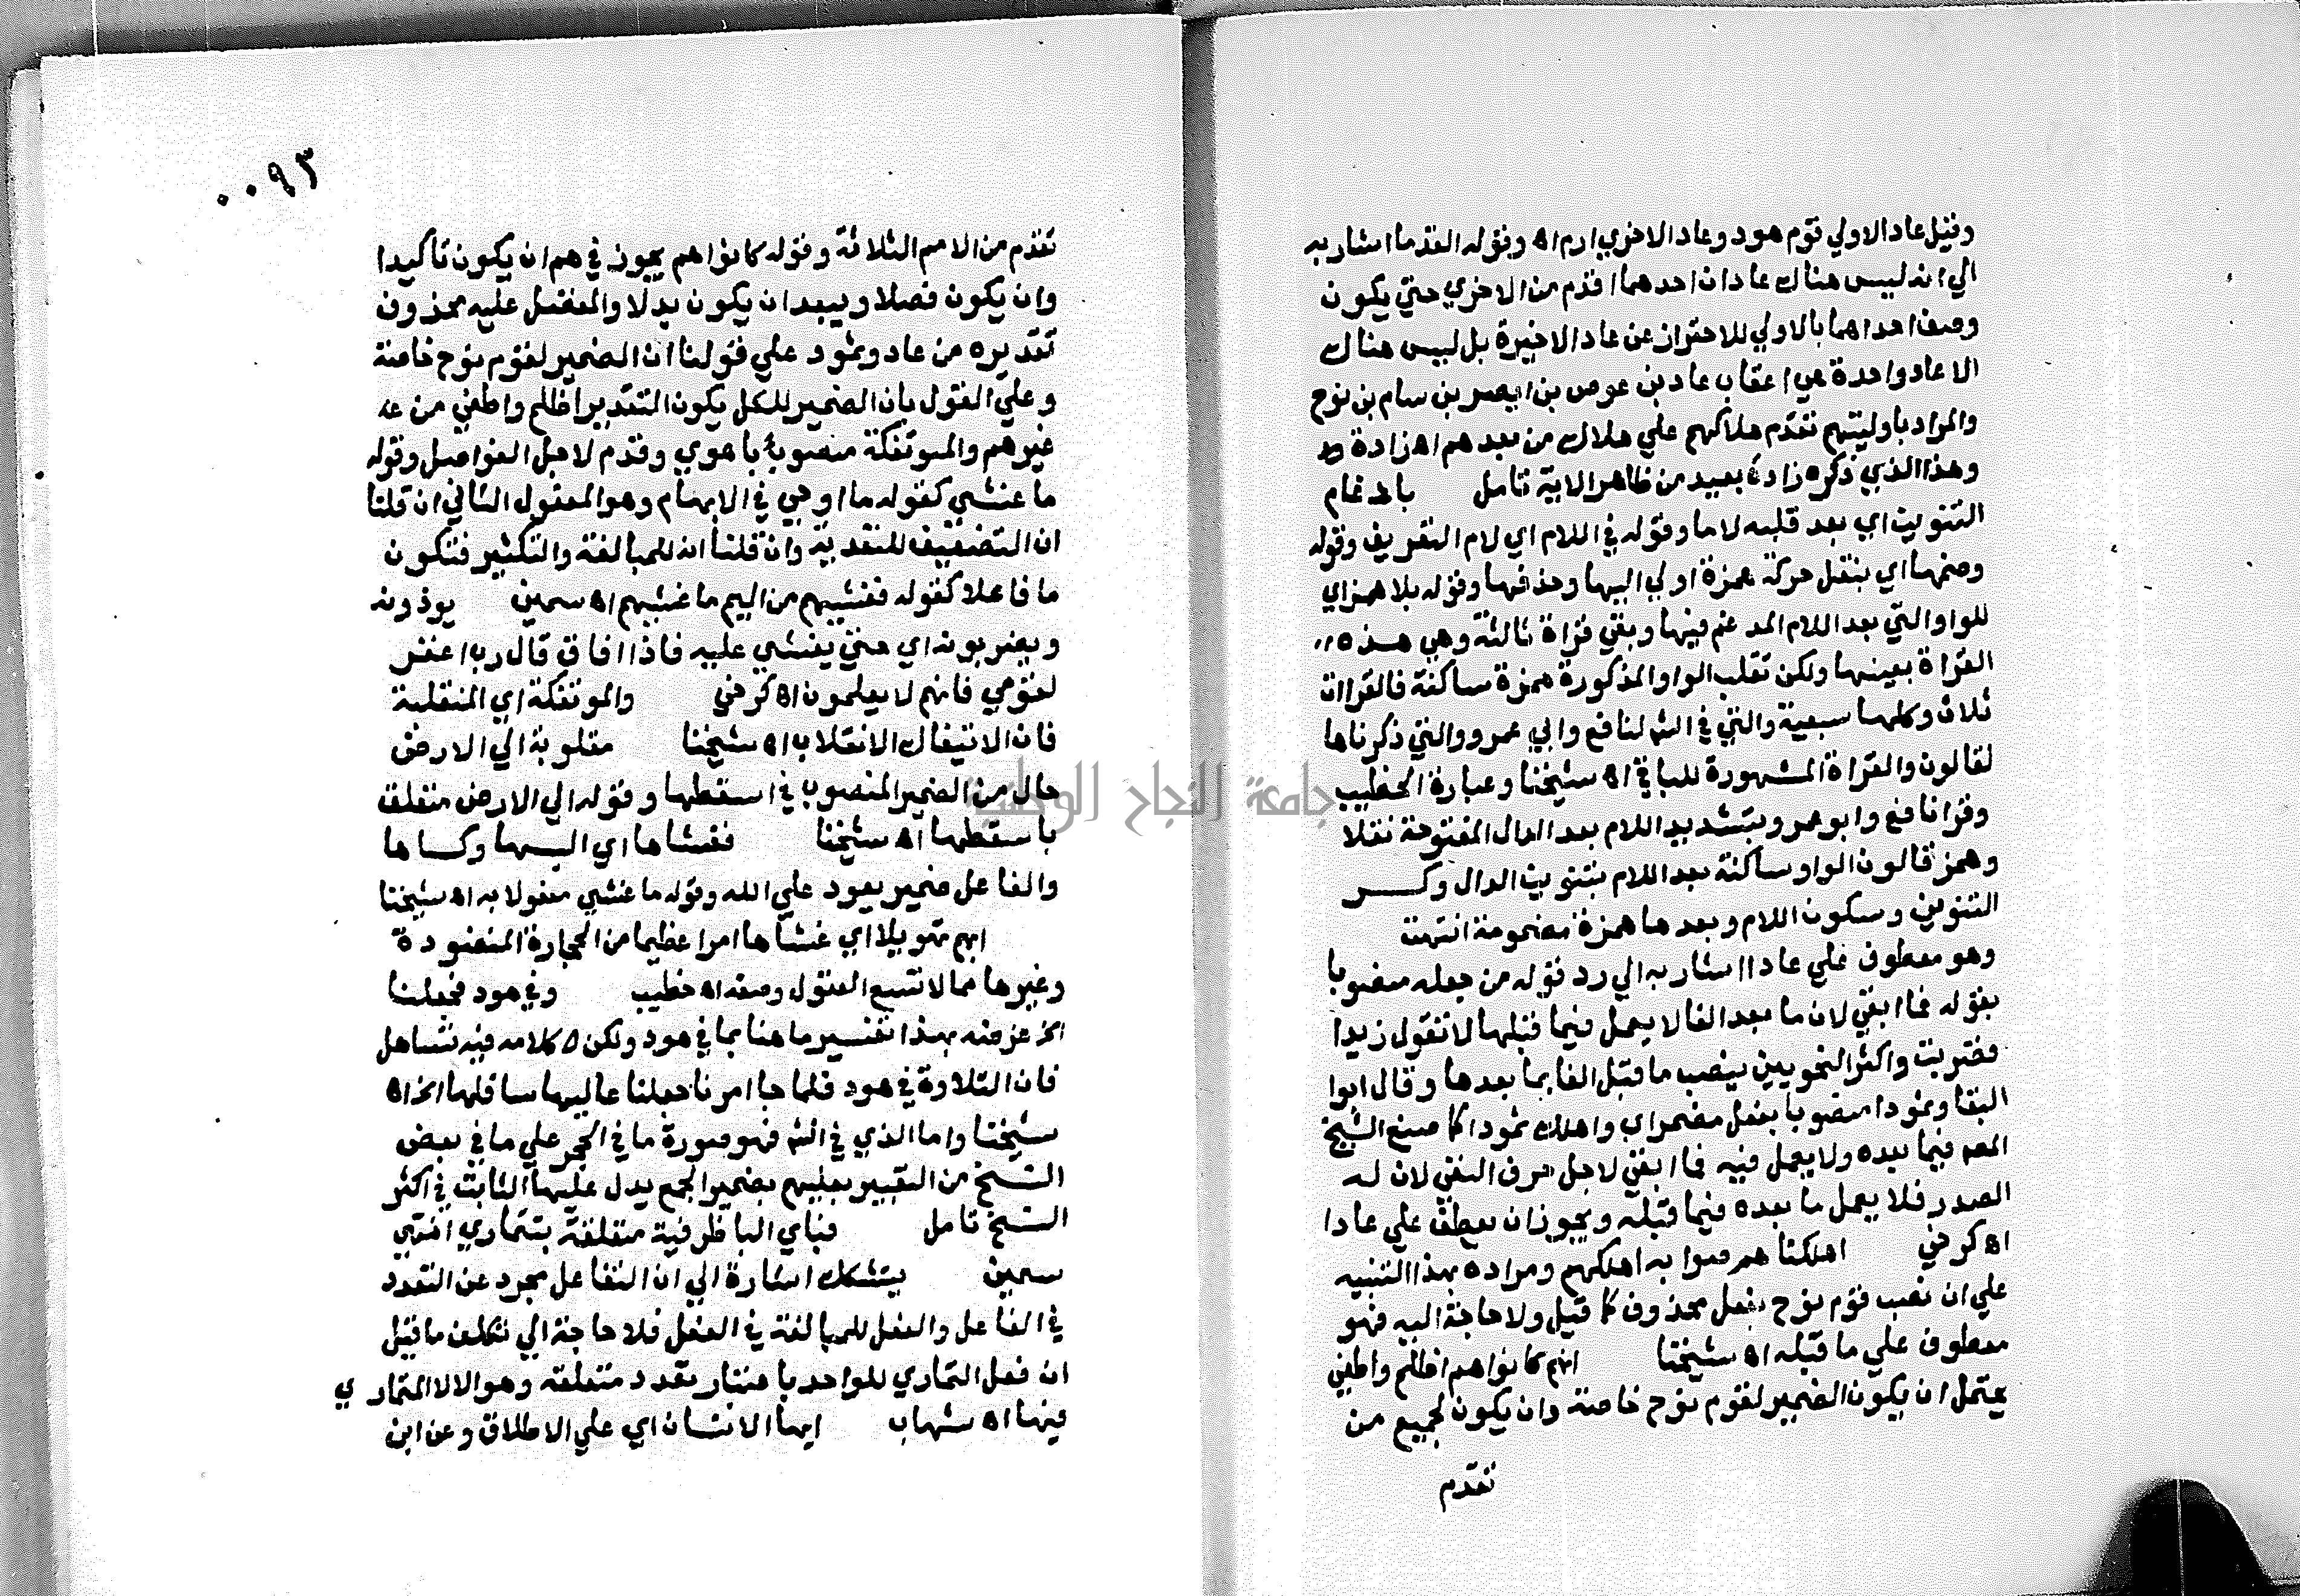 وقيل عاد الاولي قوم هود وعاد الاخري ارم اه وبقوله القدما اشار به
الي انه ليس هناك عادان احدهما اقدم من الاخري حتي يكون
وصف احداهما بالاولي للاحتراز عن عاد الاخيرة بل ليس هناك
الا عاد واحدة هي اعقاب عاد بن عوص بن ارم بن سام بن نوح
والمراد باوليتهم تقدم هلاكهم علي هلاك من بعدهم اه زاده
وهذا الذي ذكره زاده بعيد من ظاهر الاية تامل بادغام
التنوين اي بعد قلبه لاما وقوله في اللام اي لام التعريف وقوله
وضمها اي بنقل حركة همزة اولي اليها وحذفها وقوله بلا همز اي
للواو التي بعد اللام المدغم فيها وبقي قراة ثالثة وهي هذه
القراة بعينها ولكن تقلب الواو المذكورة همزة ساكنة فالقراات
ثلاث وكلها سبعية والتي في الش لنافع وابي عمرو والتي ذكرناها
لقالون والقراة المشهورة للباقي اه شيخنا وعبارة الخطيب
وقرا نافع وابو عمرو بتشديد اللام بعد الدال المفتوحة نقلا
وهمز قالون الواو ساكنة بعد اللام بتنوين الدال وكسر
التنوين وسكون اللام وبعدها همزة مضمومة انتهت
وهو معطوف علي عادا اشار به الي رد قول من جعله منصوبا
بقوله فما ابقي لان ما بعد الفا لا يعمل فيما قبلها لا تقول زيدا
فضربت واكثر النحويين ينصب ما قبل الفا بما بعدها وقال ابوا
البقا وثمودا منصوبا بفعل مضمر اي واهلك ثمودا كما صنع الشيخ
المص فيما بعده ولا يعمل فيه فما ابقي لاجل حرف النفي لان له
الصدر فلا يعمل ما بعده فيما قبله ويجوز ان يعطف علي عادا
اه كرخي اهلكنا هم صوابه اهلكهم ومراده بهذا التنبيه
علي ان نصب قوم نوح بفعل محذوف كما قيل ولا حاجة اليه فهو
معطوف علي ما قبله اه شيخنا انهم كانوا هم اظلم واطغي
يحتمل ان يكون الضمير لقوم نوح خاصة وان يكون لجميع من
تقدم
٠٠٩٣
تقدم من الامم الثلاثة وقوله كانوا هم يجوز في هم ان يكون تاكيدا
وان يكون فصلا ويبعد ان يكون بدلا والمفضل عليه محذوف
تقديره من عاد وثمود علي قولنا ان الضمير لقوم نوح خاصة
وعلي القول بان الضمير للكل يكون التقدير اظلم واطغي من
غيرهم والموتفكة منصوبة باهوي وقدم لاجل الفواصل وقوله
ما غشي كقوله ما اوحي في الابهام وهو المفعول الثاني ان قلنا
ان التضعيف للتعدية وان قلنا انه للمبالغة والتكثير فتكون
ما فاعلا كقوله فغشيهم من اليم ما غشيهم اه سمين يوذونه
ويضربونه اي حتي يغشي عليه فاذا افاق قال رب اغفر
لقومي فانهم لا يعلمون اه كرخي والموتفكة اي المنقلبة
فان الائتفاك الانقلاب اه شيخنا مقلوبة الي الارض
حال من الضمير المنصوب في اسقطها وقوله الي الارض متعلق
باسقطها اه شيخنا فغشاها اي البسها وكساها
والفاعل ضمير يعود علي الله وقوله ما غشي مفعولا به اه شيخنا
ابهم تهويلا اي غشاها امرا عظيما من الحجارة المنضودة
وغيرها مما لا تسع العقول وصفه اه خطيب وفي هود فجعلنا
الخ غرضه بهذا تفسير ما هنا بما في هود ولكن كلامه فيه تساهل
فان التلاوة في هود فلما جا امرنا جعلنا عاليها سافلها الخ اه
شيخنا واما الذي في الش فهو صورة ما في الحجر علي ما في بعض
النسخ من التعبير بعليهم بضمير الجمع بدل عليها الثابت في اكثر
النسخ تامل فباي البا ظرفية متعلقة بتتماري انتهي
سمين يتشكك اشارة الي ان التفاعل مجرد عن التعدد
في الفاعل والفعل للمبالغة في الفعل فلا حاجة الي تكلف ما قيل
ان فعل التماري للواحد باعتبار تعدد متعلقه وهو الالا المتماري
فيها اه شهاب ايها الانسان اي علي الاطلاق وعن ابن
جامعة النجاح الوطنية